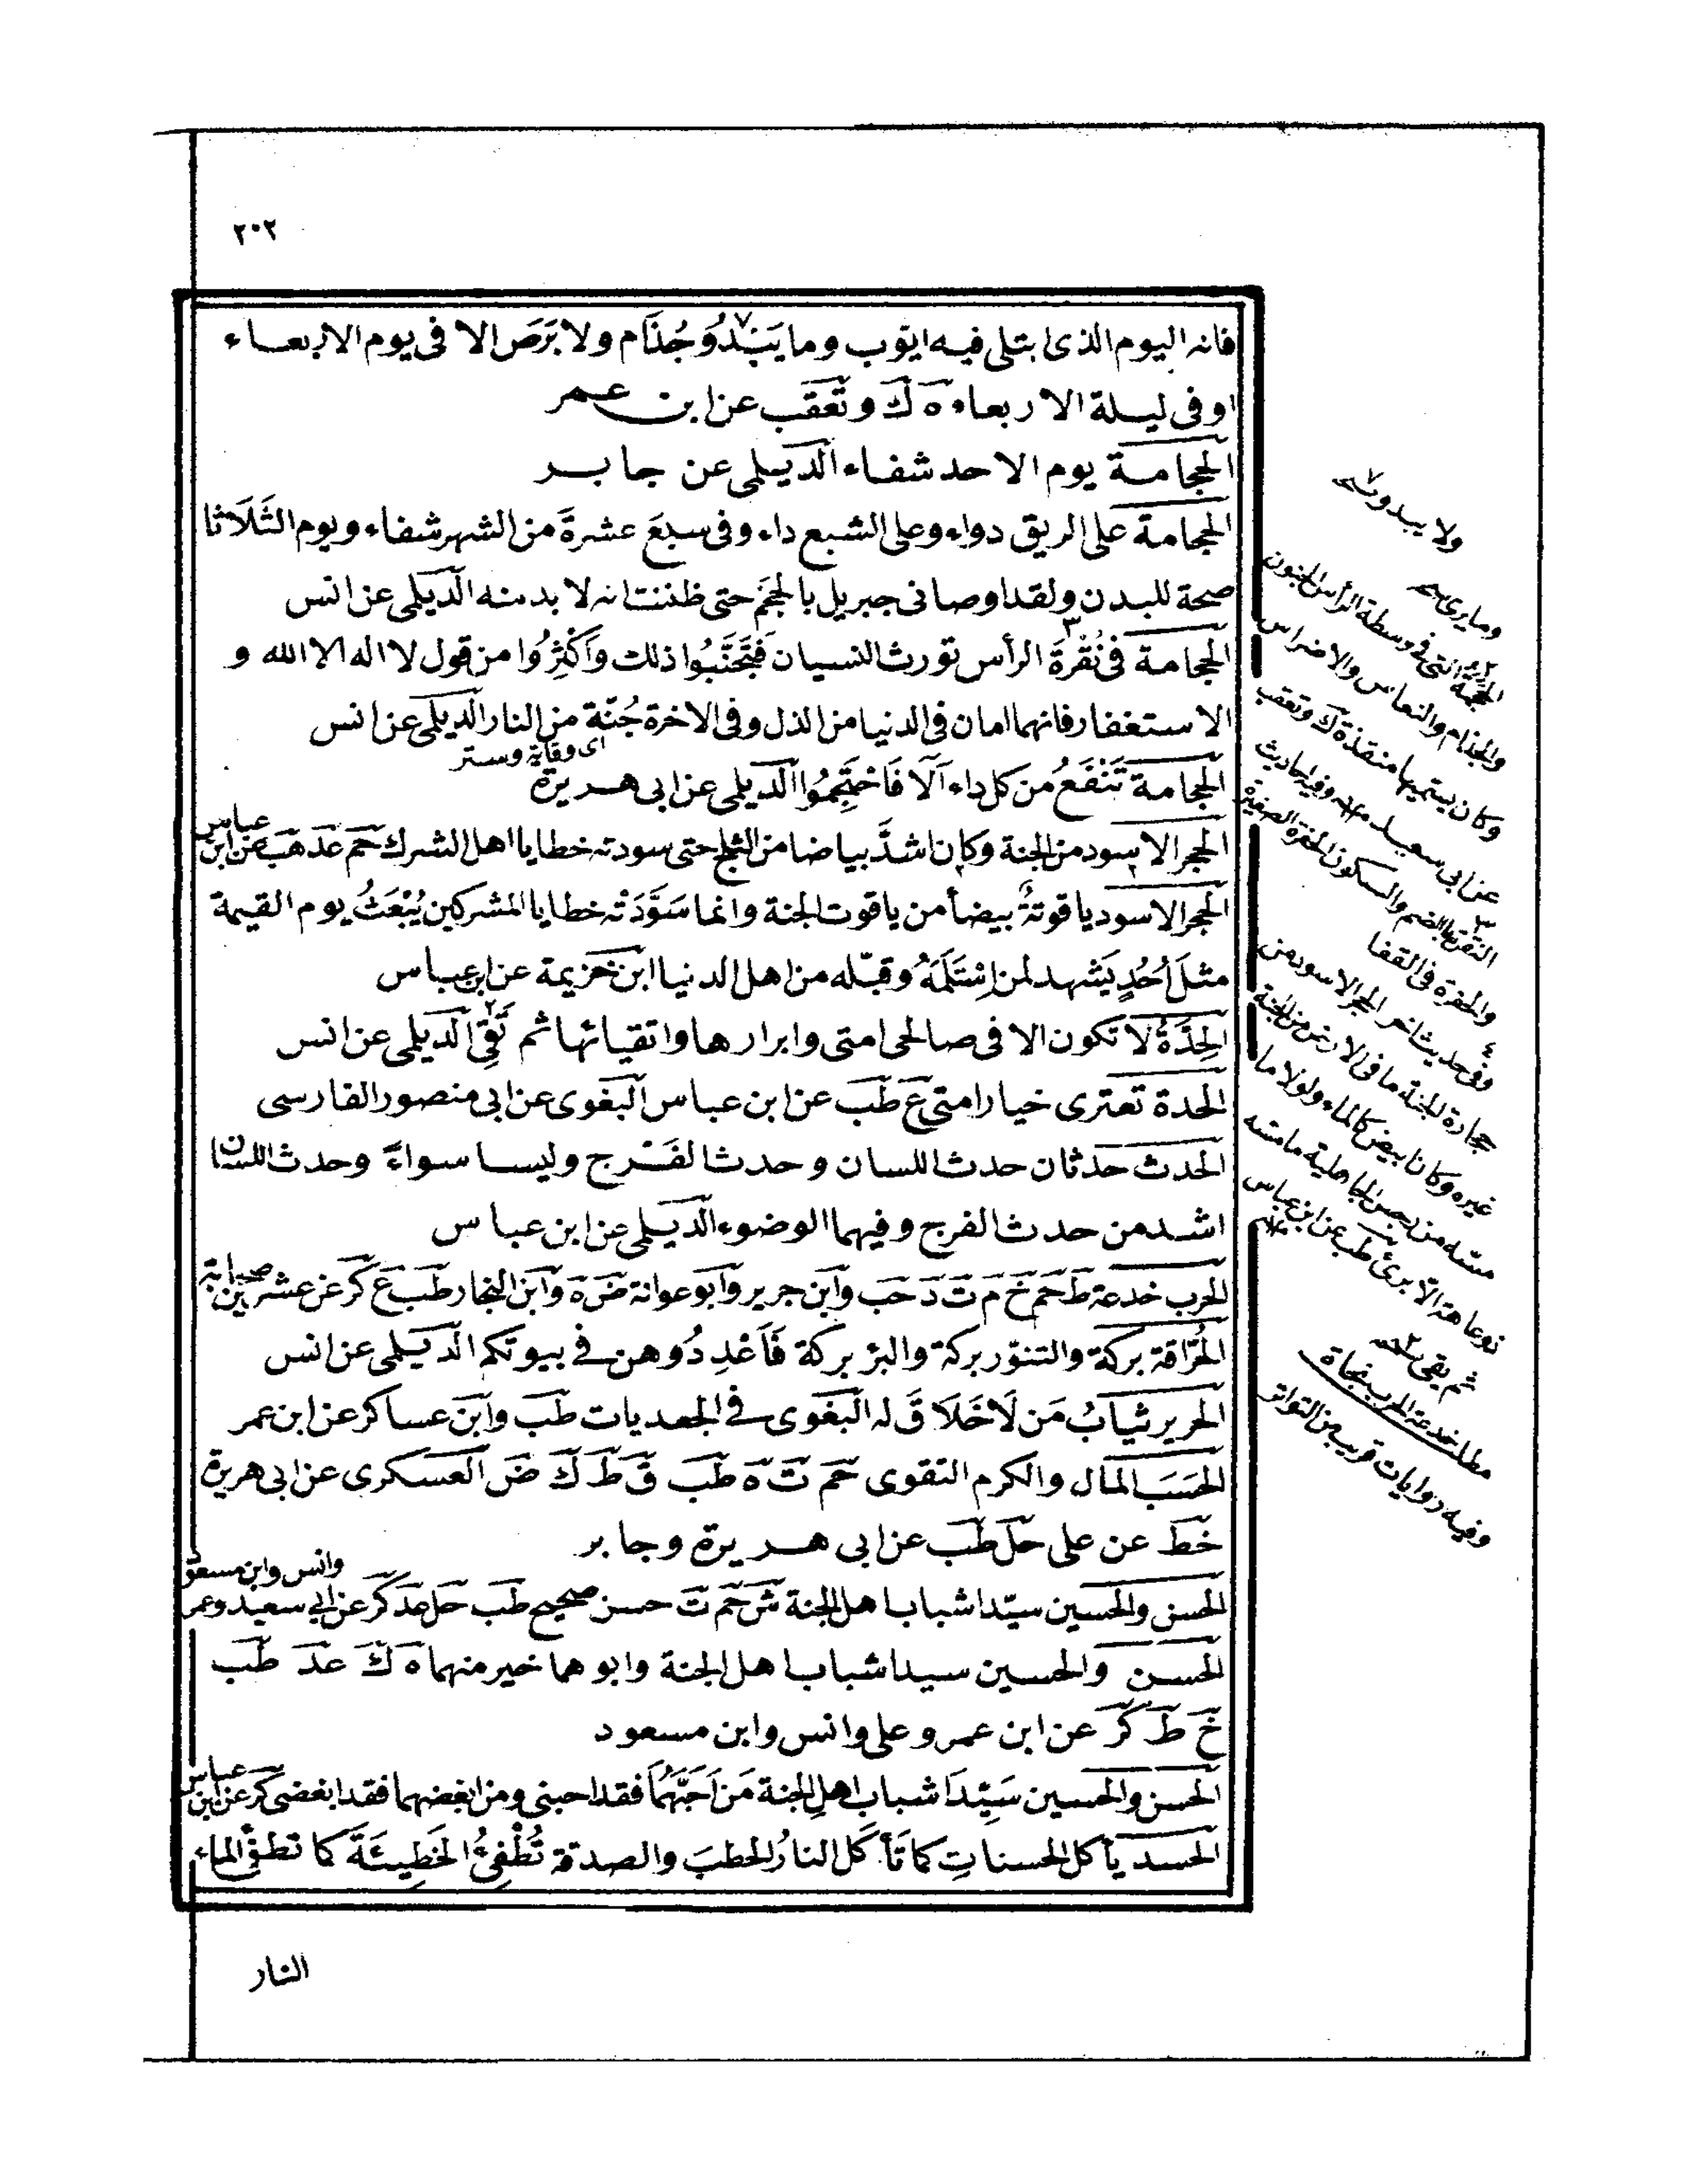 ٢٠٢
فانه اليوم الذى ابتلى فيه ايّوب وما يَبْدُو جُذَام ولا بَرَصَ الا فى يوم الاربعاء
او فى ليلة الاربعاء ه ك وتعقب عن ابن عمر
الحجامة يوم الاحد شفاء الديلمى عن جابر
الحجامة على الريق دواء وعلى الشبع داء وفى سبعَ عشرةَ من الشهر شفاء ويوم الثَلَاثا
صحة للبدن ولقد اوصانى جبريل بالحجَم حتى ظننت انه لا بد منه الديلمى عن انس
الحجامة فى نُقْرَةِ الرأس تورث النسيان فَتَجَنَّبُوا ذلك وَاَكْثِرُوا من قول لا اله الا الله و
الاستغفار فانهما امان فى الدنيا من الذل وفى الاخرة جُنّة من النار الديلمى عن انس
اى وقاية وستر
الحجامة تَنْفَعُ من كل داء اَلَا فَاحْتَجِمُوا الديلمى عن ابى هريرة
الحجر الاسود من الجنة وكان اشدَّ بياضا من الثلج حتى سودته خطايا اهل الشرك حم عد هب عن ابن عباس
الحجر الاسود ياقوتةٌ بيضأ من ياقوت الجنة وانما سَوَّدَتْه خطايا المشركين يُبْعَثُ يوم القيمة
مثلَ اُحُدٍ يَشهد لمن اِسْتَلَمَهُ وقبّله من اهل الدنيا ابن خزيمة عن ابن عباس
الحِدَّةُ لا تكون الا فى صالحى امتى وابرارها واتقيائها ثم تَقِى الديلمى عن انس
الحدة تعترى خيار امتى ع طب عن ابن عباس البغوى عن ابى منصور الفارسى
الحدث حدثان حدث اللسان وحدث الفَرج وليسا سواءً وحدث اللسان
اشد من حدث الفرج وفيهما الوضوء الديلمى عن ابن عباس
الحرب خدعة ط حم خ م ت د حب وابن جرير وابو عوانة ض ه وابن النجار طب ع كر عن عشرين صحابة
الحُرّاقة بركة والتنوّر بركة والبئر بركة فَاَعْدِدُوهن فى بيوتكم الديلمى عن انس
الحرير ثيابُ مَن لَا خَلَاقَ له البغوى فى الجعديات طب وابن عساكر عن ابن عمر
الحَسَبَ المال والكرم التقوى حم ت ه طب ق ط ك ض العسكرى عن ابى هريرة
خط عن على حل طب عن ابى هريرة وجابر
الحسن والحسين سيّدا شباب اهل الجنة ش حم ت حسن صحيح طب حل عد كر عن ابى سعيد وعمر
وانس وابن مسعود
الحسن والحسين سيدا شباب اهل الجنة وابوهما خير منهما ه ك عد طب
خ ط كر عن ابن عمر وعلى وانس وابن مسعود
الحسن والحسين سَيِّدَا شباب اهل الجنة مَن اَحَبَّهُمَا فقد احبنى ومن ابغضهما فقد ابغضنى كر عن ابن عباس
الحسد يأكل الحسناتِ كما تَأكل النارُ الحطبَ والصدقة تُطْفِئُ الخَطِيئَةَ كما تطفئ الماء
النار
ولا يبدو
وما يرى
الحجمة التى فى وسطة الرأس الجنون
والجذام والنعاس والاضراس
وكان يسميها منقذة ك وتعقب
عن ابى سعيد وفيه احاديث
النقرة بالضم والسكون الحفرة الصغيرة
والحفرة فى القفا
وفى حديث اخر الحجر الاسود من
حجارة الجنة ما فى الارض من الجنة
غيره وكان ابيض كالماء ولولا ما
مسّه من رجس الجاهلية ما مسه
ذو عاهة الا برئ طب عن ابن عباس
ثم يقى
مطلب خدعة الحرب نجاة
وفيه روايات قريب من التواتر